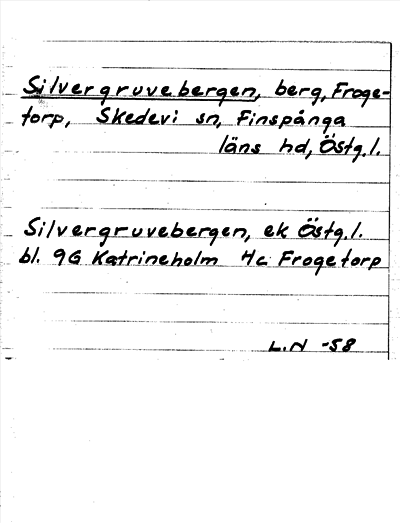 Silvergruvebergen, berg, Froge-
torp, Skedevi sn, Finspånga
läns hd, Östg.l.
Silvergruvebergen, ek Östg.l.
bl. 9G Katrineholm 4c Frogetorp
L.N -58